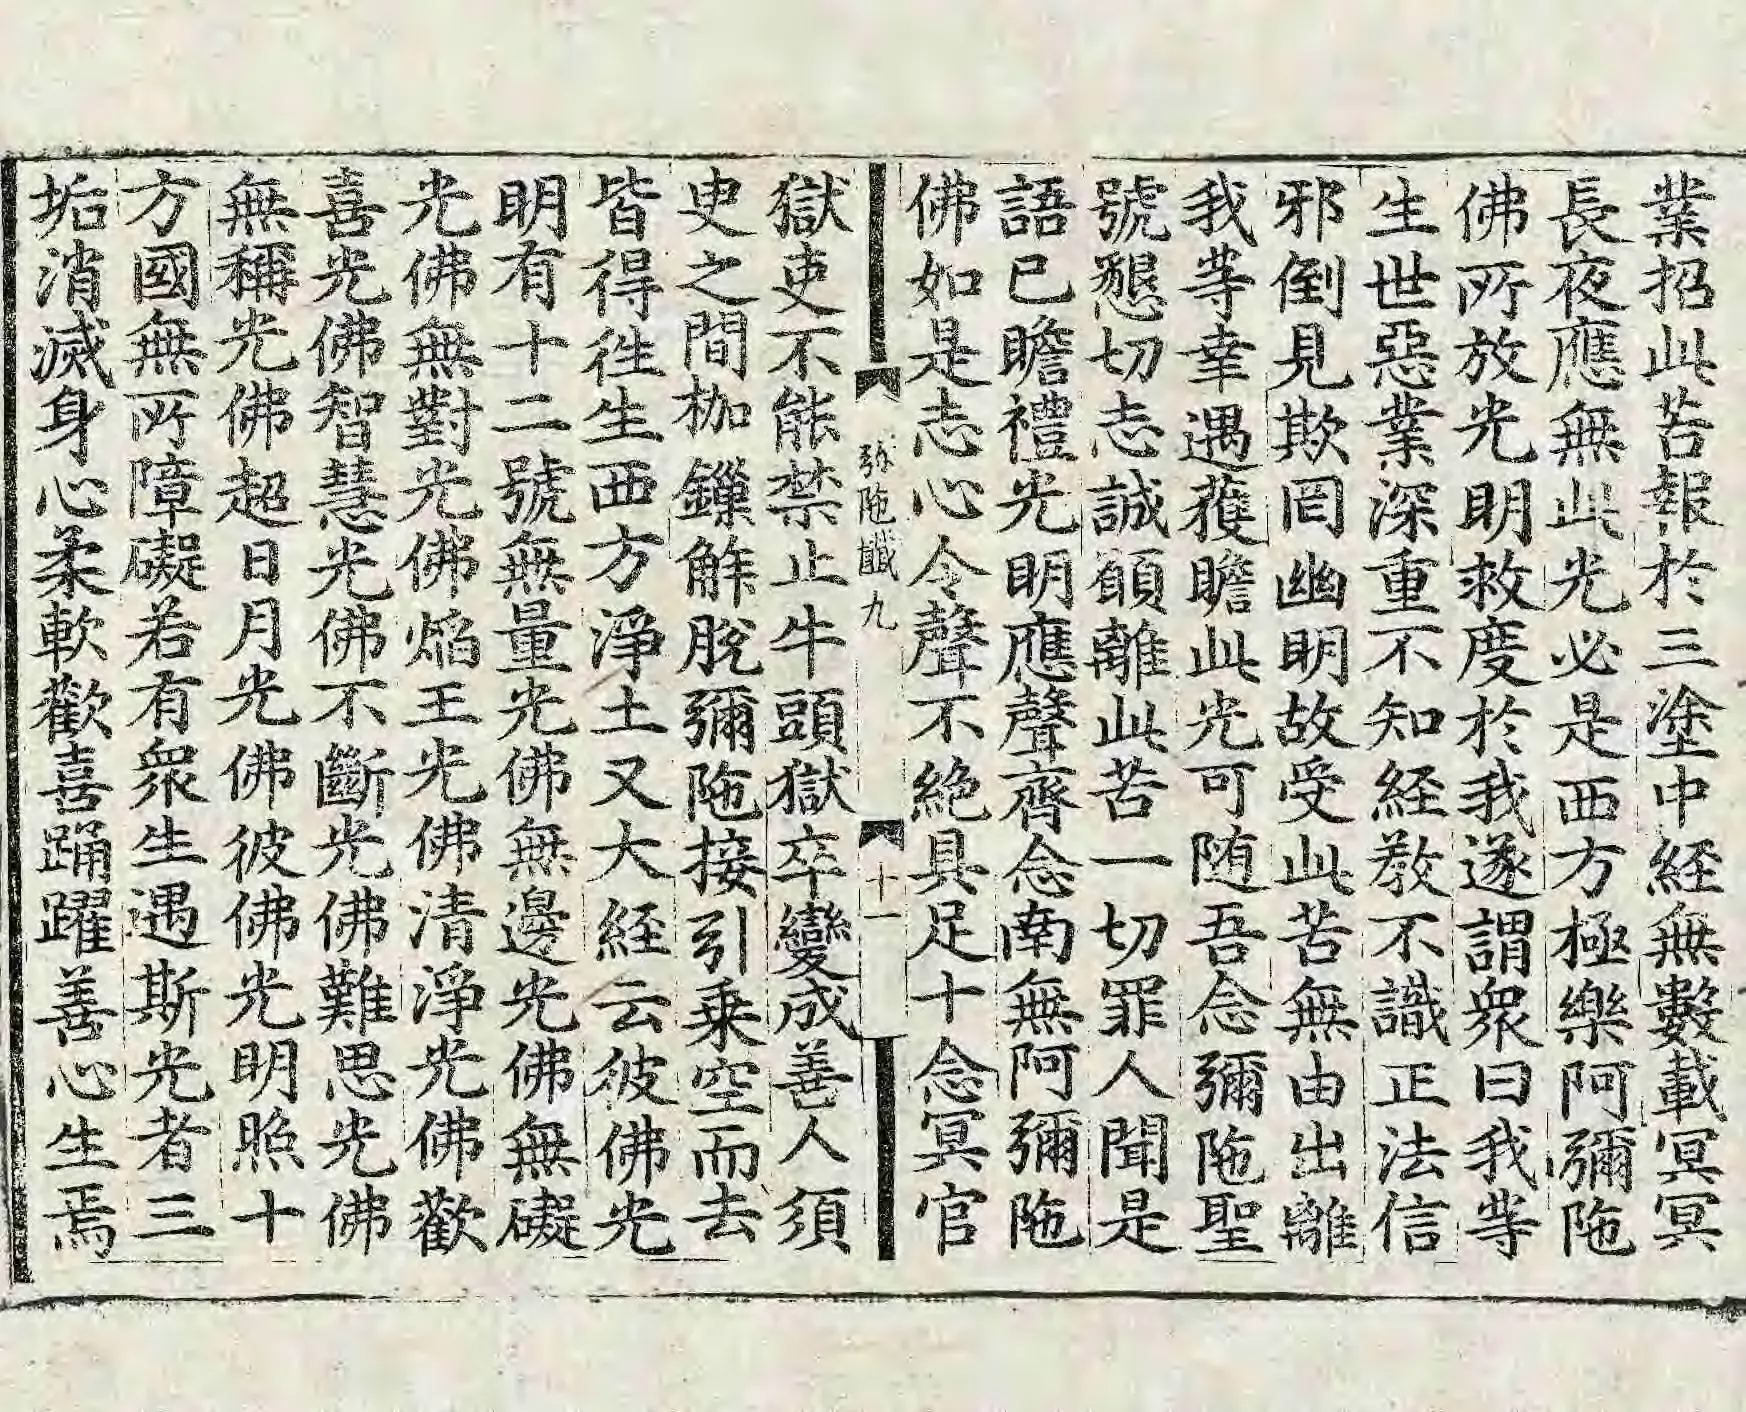 業招此苦報於三塗中経無數載冥冥
長夜應無此光必是西方極樂阿彌陁
佛所放光明救度於我遂謂衆曰我等
生世惡業深重不知経教不識正法信
邪倒見欺罔幽明故受此苦無由出離
我等幸遇獲瞻此光可随吾念彌陁聖
號懇切志誠願離此苦一切罪人聞是
語已瞻禮光明應聲齊念南無阿彌陁
佛如是志心令聲不絶具足十念冥官
弥陁懺九
十一
獄吏不能禁止牛頭獄卒變成善人須
臾之間枷鏁解脫彌陁接引乗空而去
皆得徃生西方淨土又大経云彼佛光
明有十二號無量光佛無邊光佛無礙
光佛無對光佛焰王光佛清淨光佛歡
喜光佛智慧光佛不斷光佛難思光佛
無稱光佛超日月光佛彼佛光明照十
方國無所障礙若有衆生遇斯光者三
垢消滅身心柔軟歡喜踊躍善心生焉